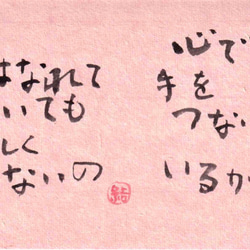 心で
手を
つない
いるか
はなれて
いても
しく
ないの
結